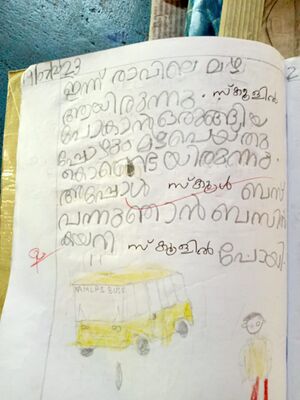 ഇന്ന് രാവിലെ മഴ
ആയിരുന്നു. സ്കൂളിൽ
പോകാൻ ഒരുങ്ങിയ
പ്പോഴും മഴപെയ്തു
കൊണ്ടേയിരുന്നു.
അപ്പോൾ സ്കൂൾ ബസ്
വന്നു ഞാൻ ബസിൽ
കയറി സ്കൂളിൽ പോയി.